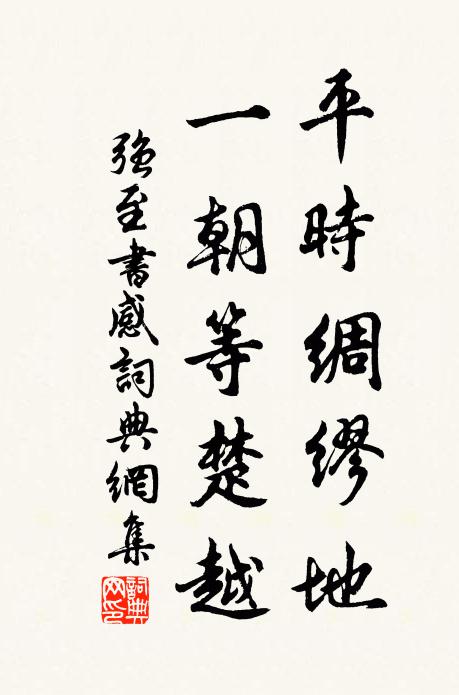 平時綢繆地
一朝等楚越
強至書感詞典網集
詞典
網印